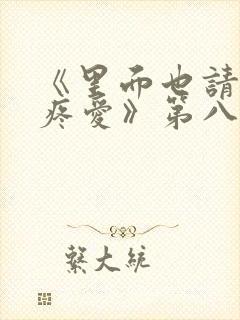 《里而也請
疼愛》第八
繫大統